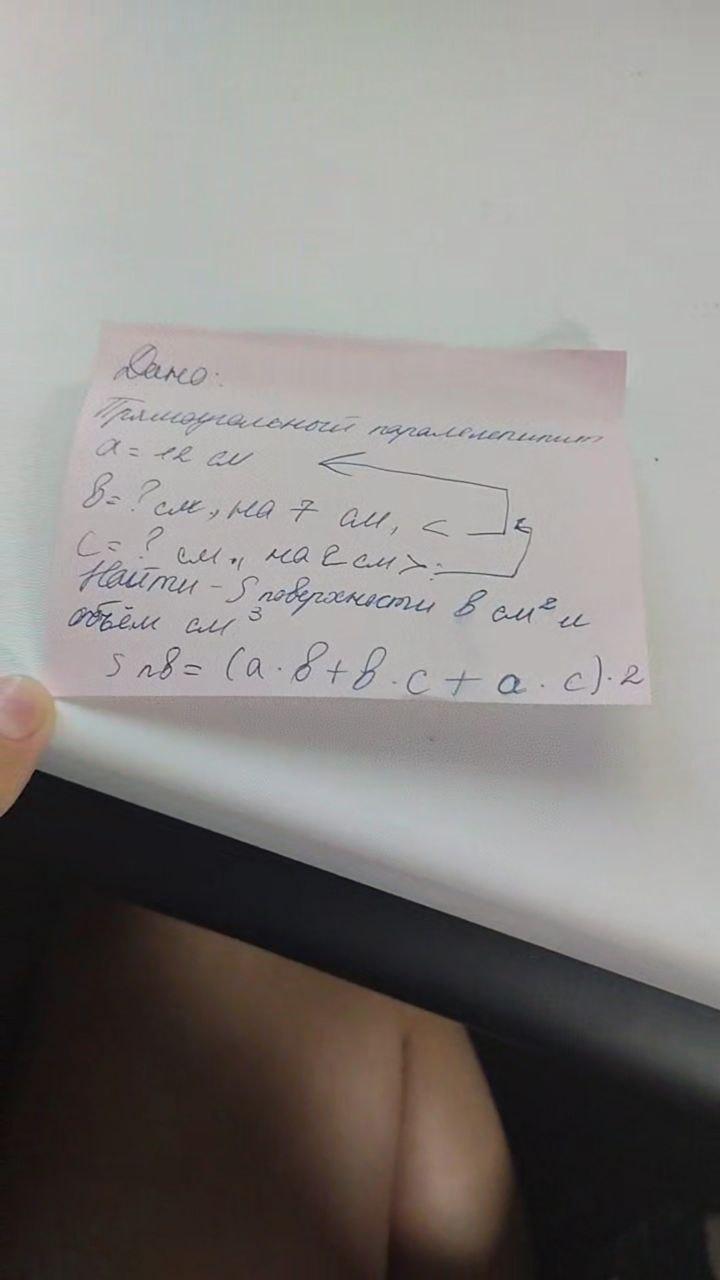 Дано:
Прямоугольный паралелепипит
a = 12 см
в = ? см, на 7 см, <
с = ? см, на 2 см >
Найти - S поверхности в см² и
объём см³
S пв = (a · в + в · c + a · c) · 2